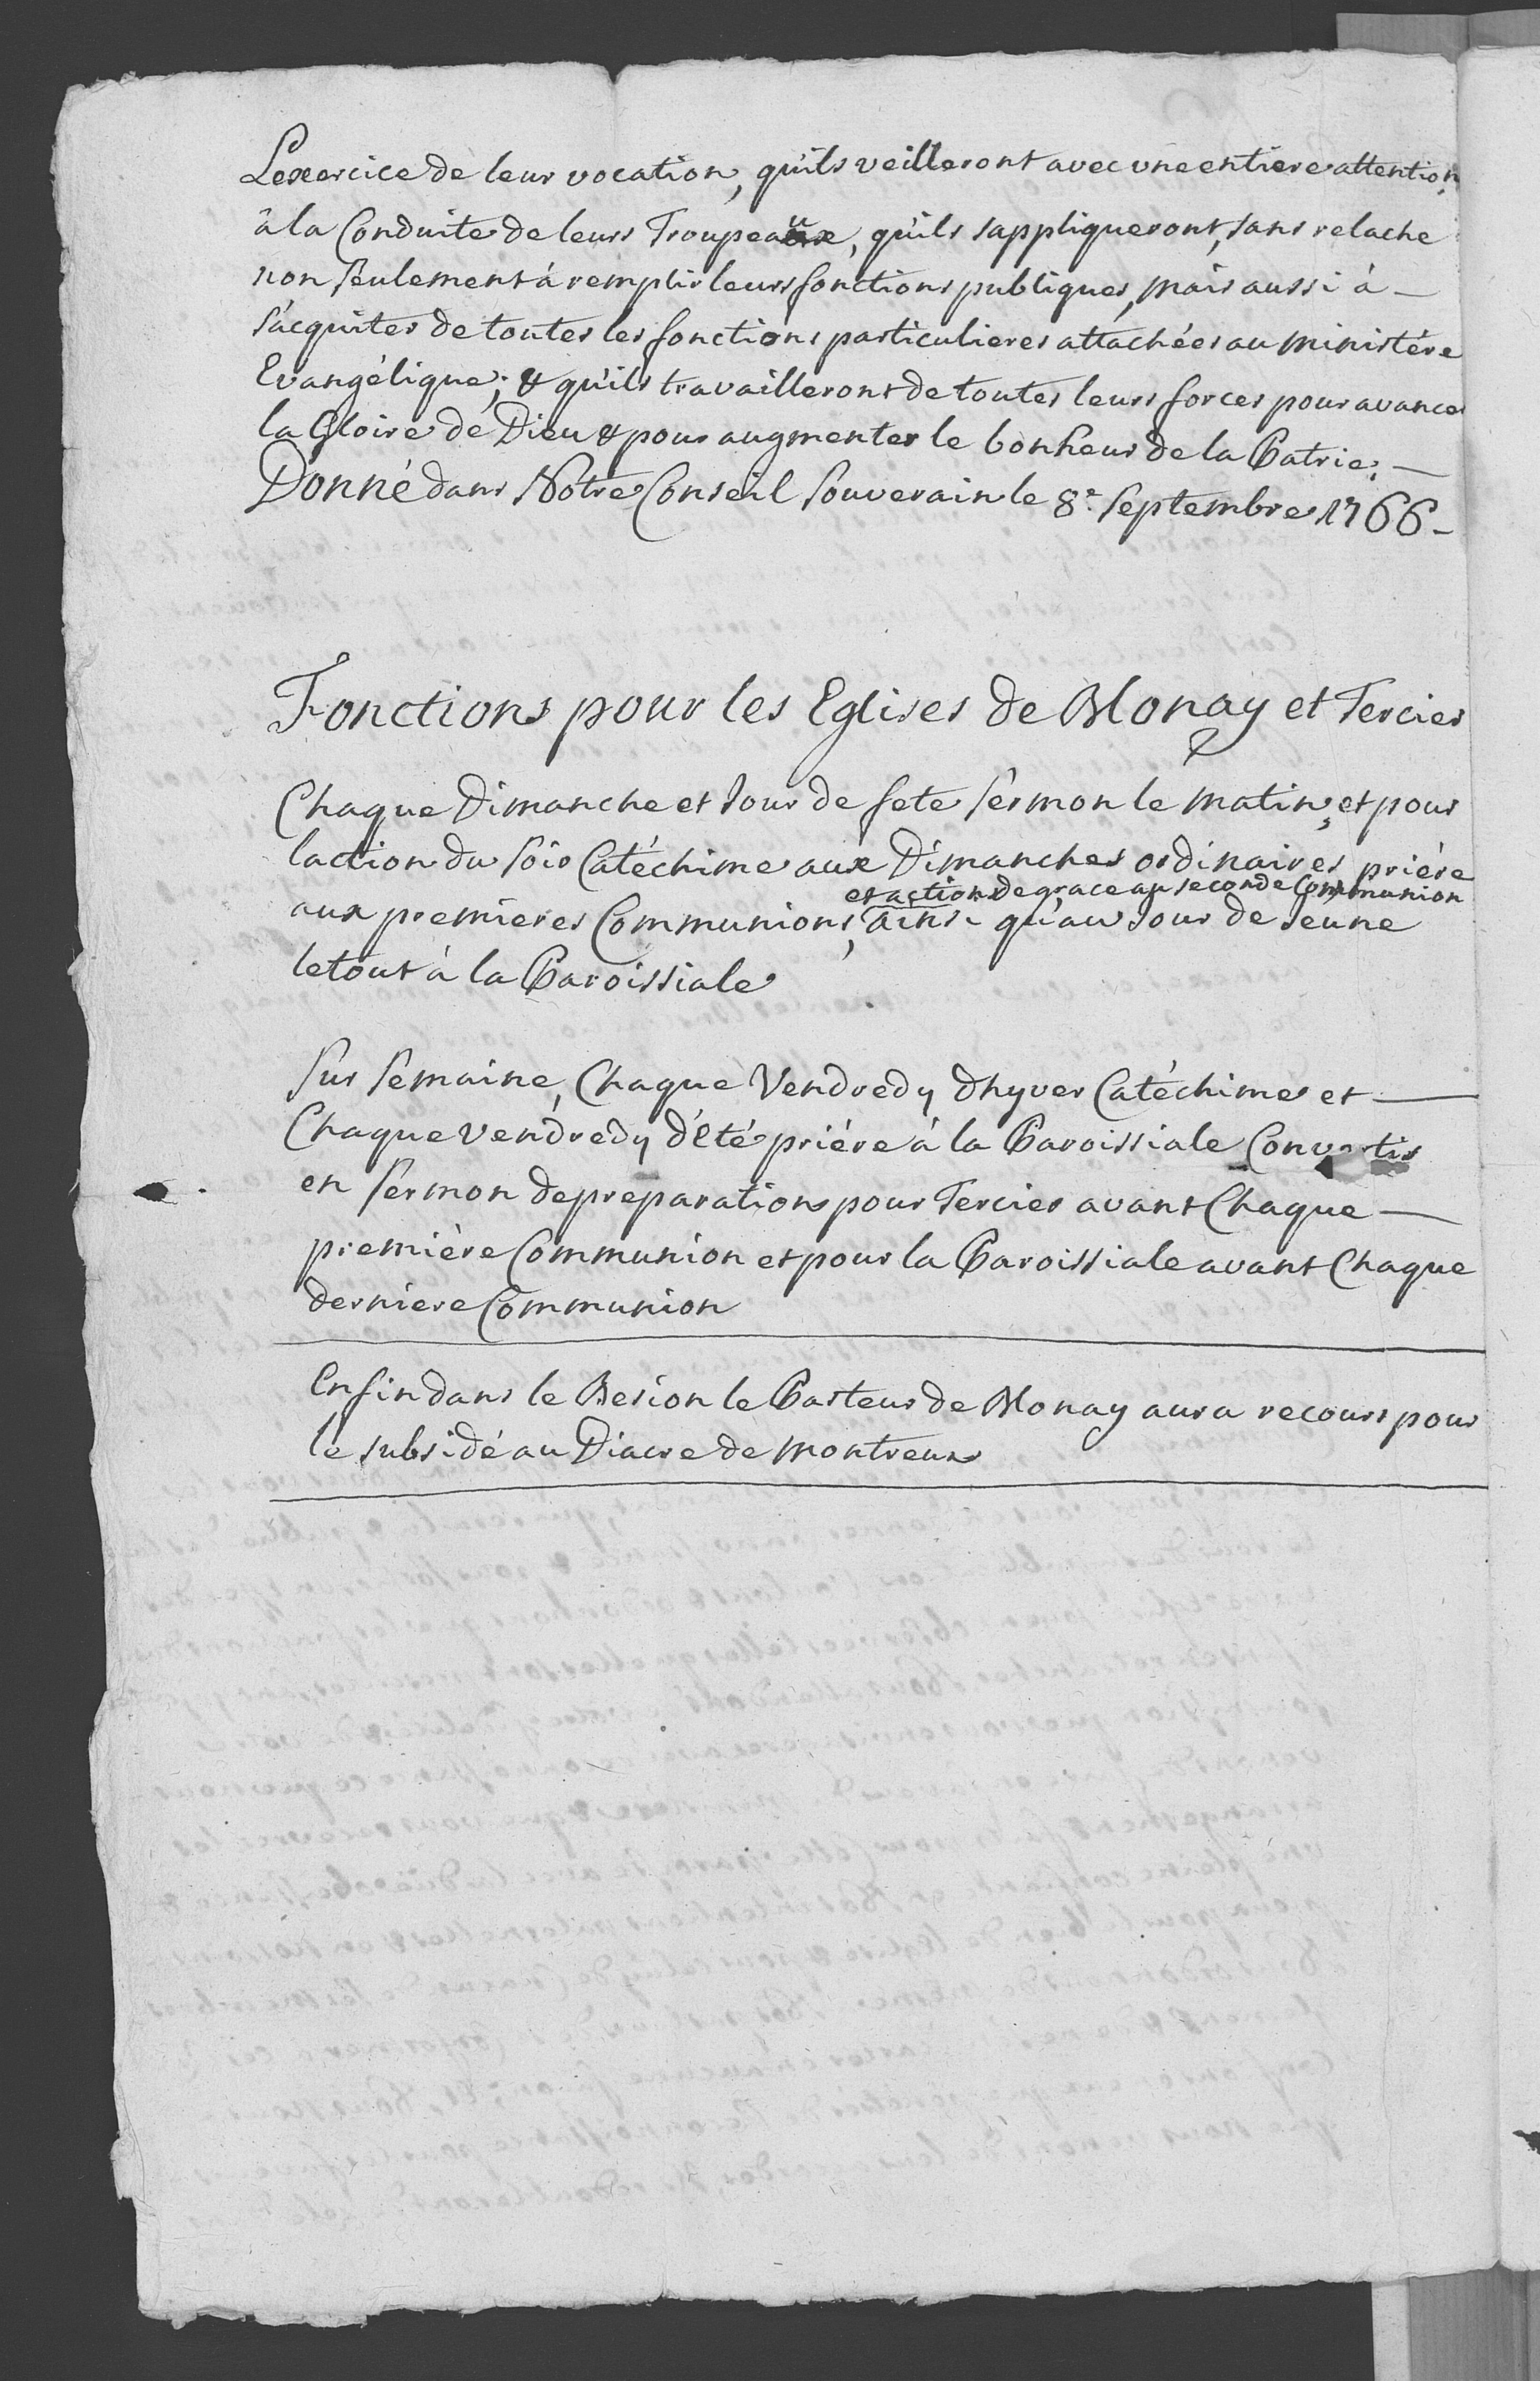 L'exercice de leur vocation, qu'ils veilleront avec une entiere attention
à la Conduite de leurs Troupeaux, qu'ils sappliqueront, sans relache
non seulement à remplir leurs fonctions publiques, mais aussi à —
s'acquiter de toutes les fonctions particulieres attachées au ministére
Evangélique; & qu'ils travailleront de toutes leurs forces pour avancer
la Gloire de Dieu & pour augmenter le bonheur de la Patrie; —
Donné dans Notre Conseil Souverain le 8.e Septembre 1766 –
Fonctions pour les Eglises de Blonay et Tercier
Chaque Dimanche et Jour de fete Sermon le matin, et pour
laction du soir Catéchime aux Dimanches ordinaires, priére
et action de grace au seconde Communion
aux premieres Communions, ainsi qu'au Jour de Jeune
le tout à la Paroissiale
Sur Semaine, Chaque Vendredy dhyver Catéchime et —
Chaque Vendredy d'Eté priére à la Paroissiale Convertir
en Sermon de preparation pour Tercier avant Chaque —
première Communion et pour la Paroissiale avant Chaque
derniere Communion
Enfin dans le Besion le Pasteur de Blonay aura recours pour
le subside au Diacre de Montreux